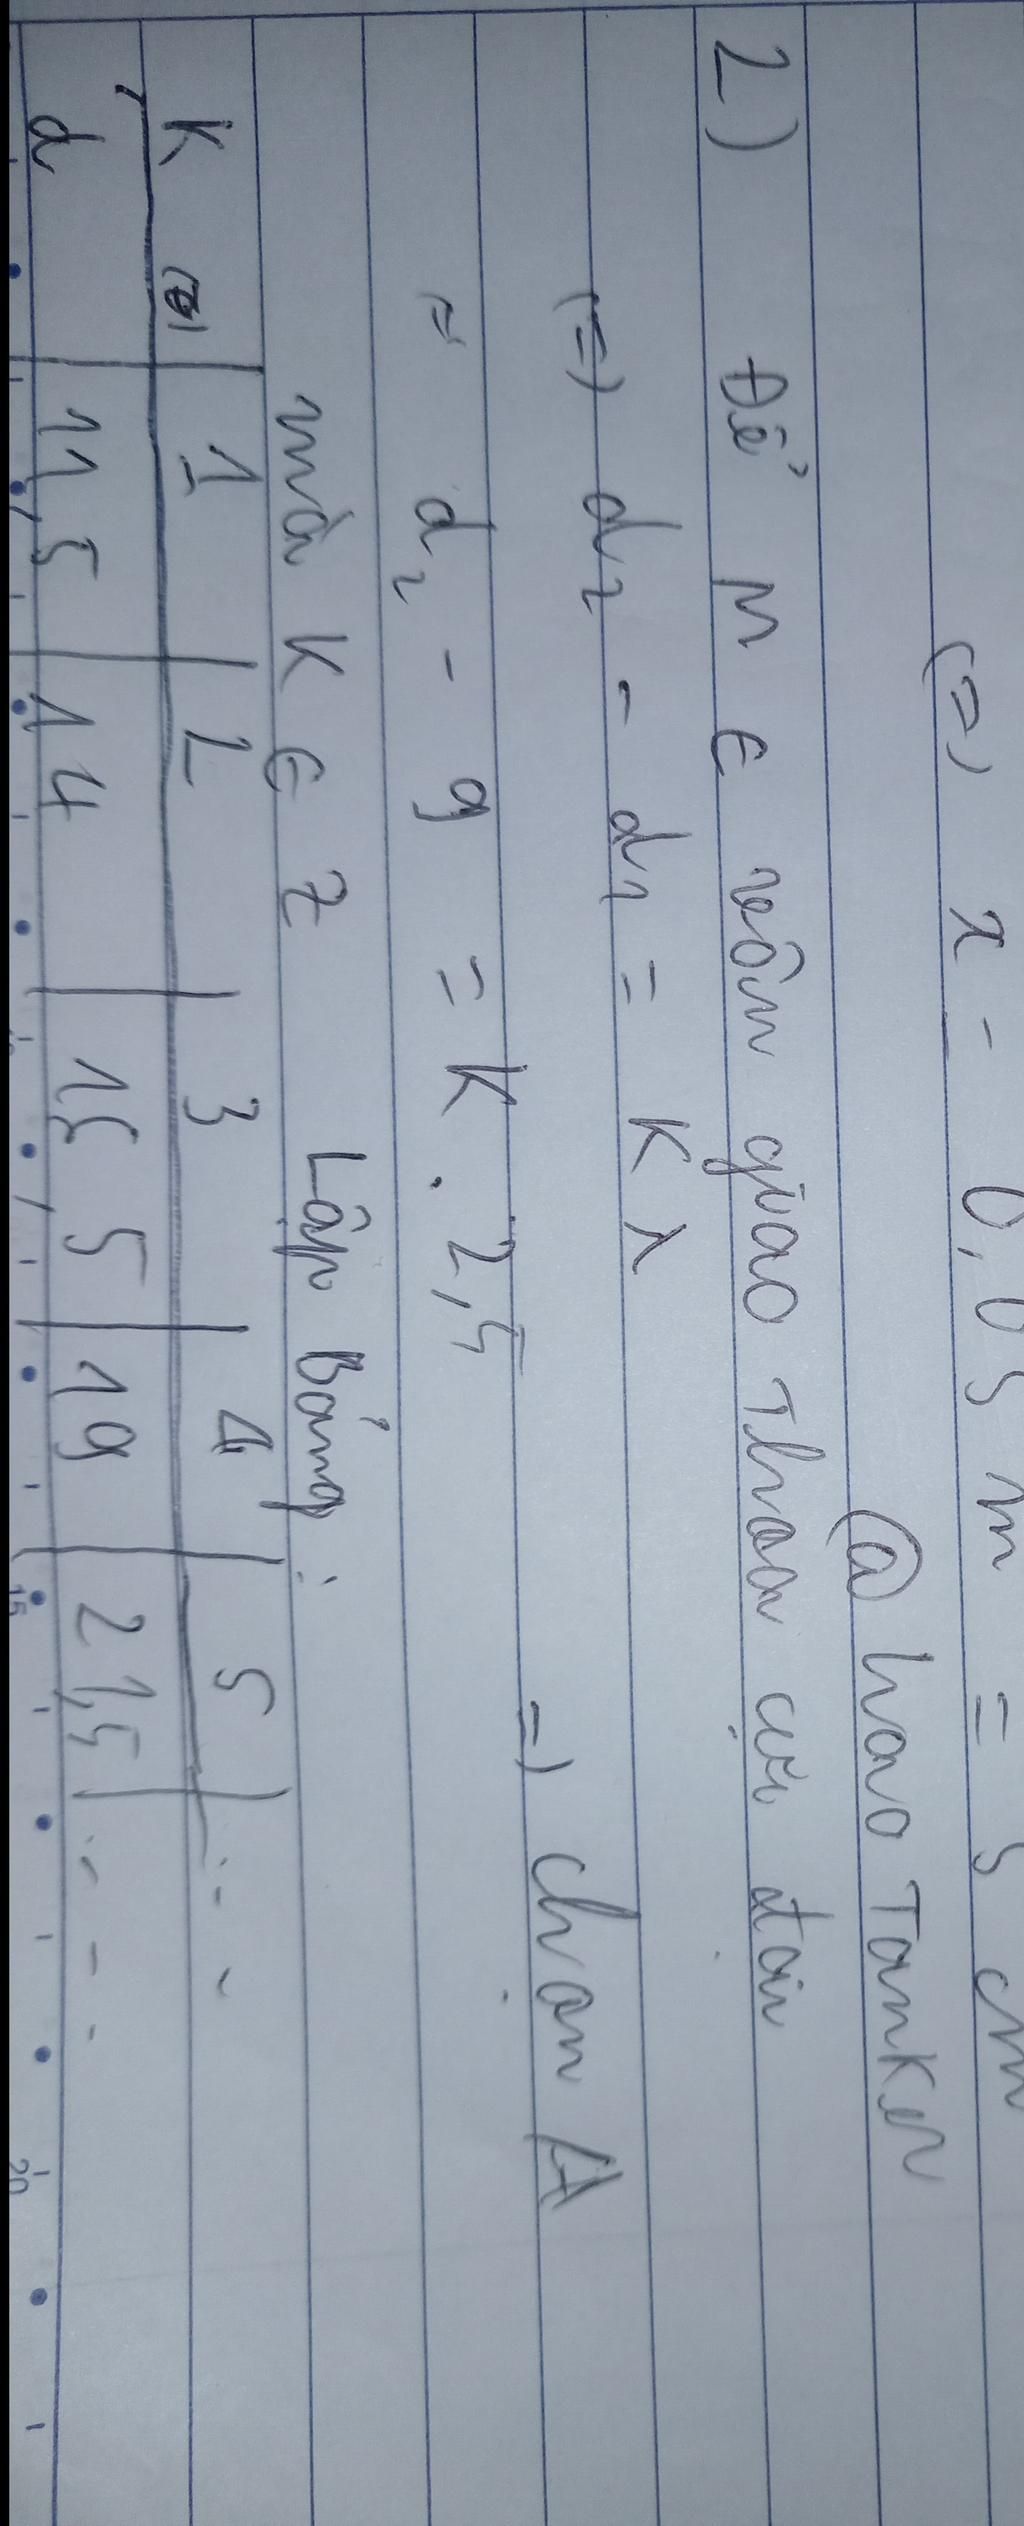 (=) x = 0,05 m = 5 cm
@ hao Tanker
2) Để M ∈ vân giao thoa cực đại
(=) d₂ - d₁ = Kλ
=) chọn A
= d₂ - 9 = K . 2,5
mà K ∈ Z Lập Bảng :
K 1 2 3 4 5 ...
d 11,5 14 16,5 19 21,5 ...